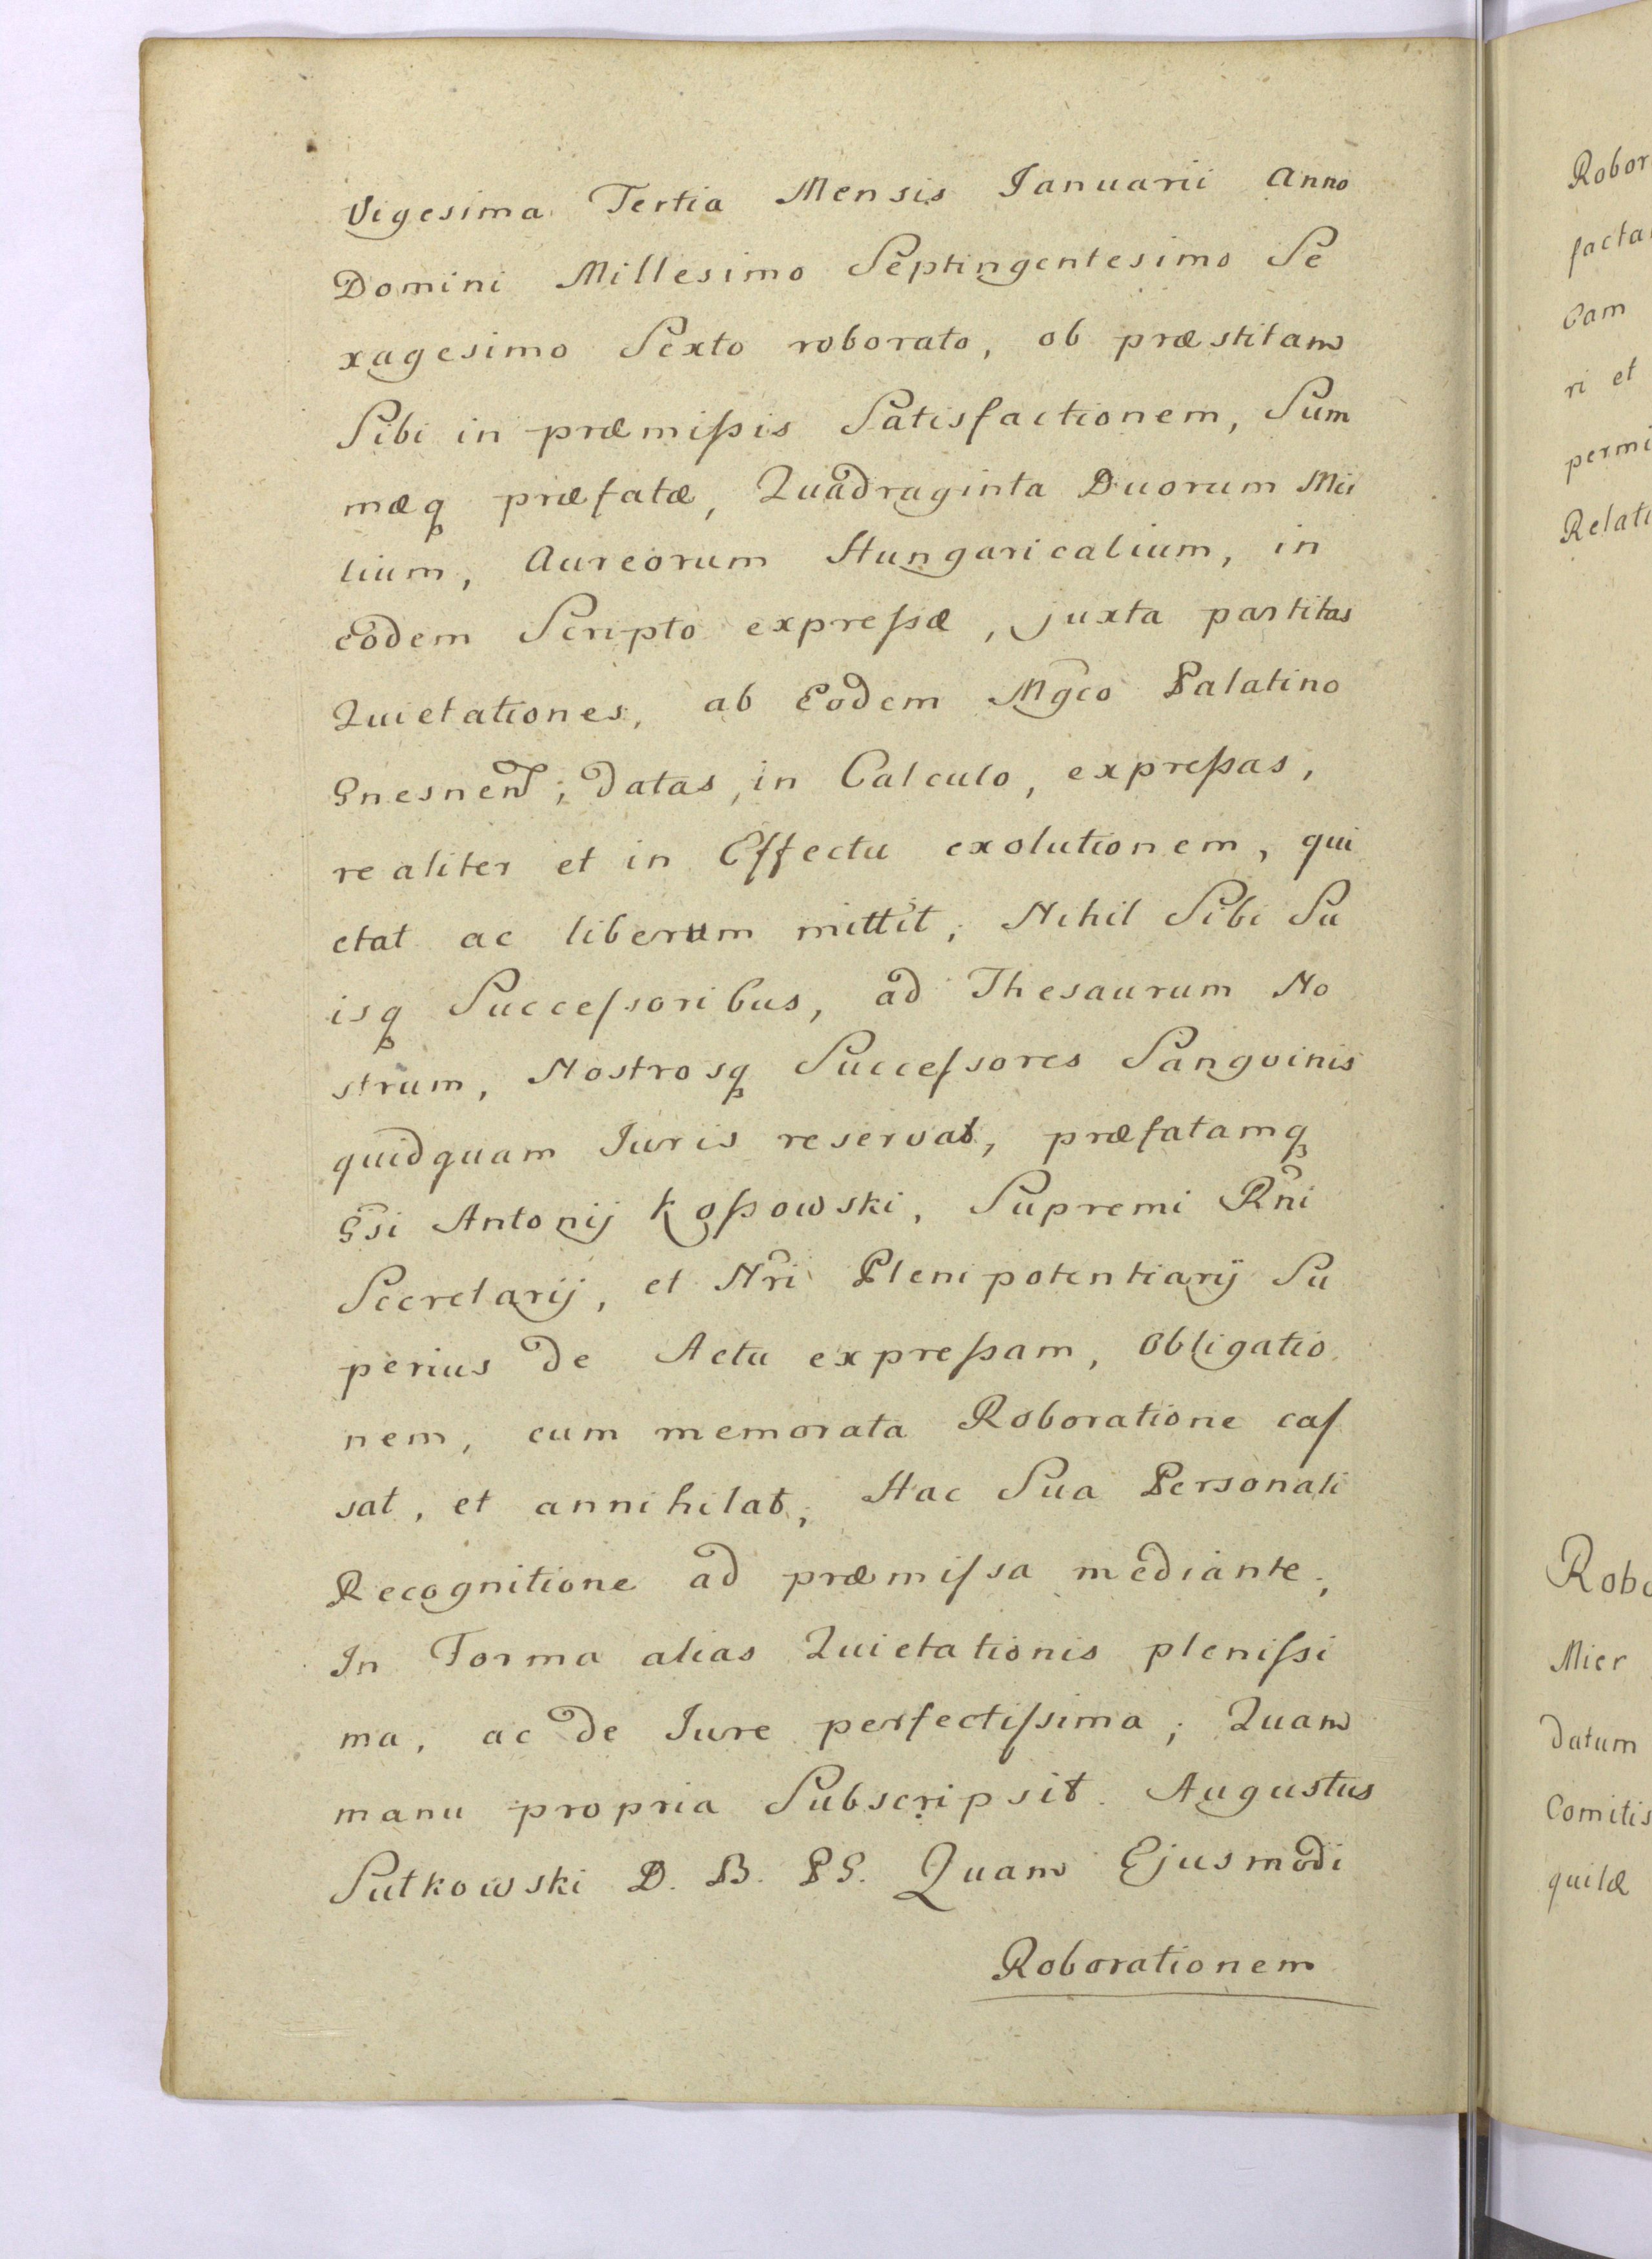 Vigesima Tertia Mensis Ianuarii Anno
Domini Millesimo Septingentesimo Se
xagesimo Sexto roborato, ob præstitam
Sibi in præmiſsis Satisfactionem, Sum
mæq præfatæ, Quadraginta Duorum Mil
lium, Aureorum Hungaricalium, in
eodem Scripto expreſsæ, juxta partitas
Quietationes, ab Eodem Mgco Palatino
Gnesnen; datas, in Calculo, expreſsas,
realiter et in Effectu exolutionem, qui
etat ac liberum mittit; Nihil Sibi Su
isq Succeſsoribus, ad Thesaurum No
strum, Nostrosq Succeſsores Sangvinis
quidquam Iuris reservat, præfatamq
Gsi Antonij Koſsowski, Supremi Rni
Secretarij, et Nri Plenipotentiarij Su
perius de Actu expreſsam, Obligatio
nem, cum memorata Roboratione caſ
sat, et annihilat; Hac Sua Personali
Recognitione ad præmiſsa mediante;
In Forma alias Quietationis pleniſsi
ma, ac de Iure perfectiſsima; Quam
manu propria Subscripsit. Augustus
Sułkowski D. B. PG. Quam Ejusmodi
Roborationem
Robor
facta
Cam
ri et
permi
Relati
Robo
Mier
datum
Comitis
quilæ